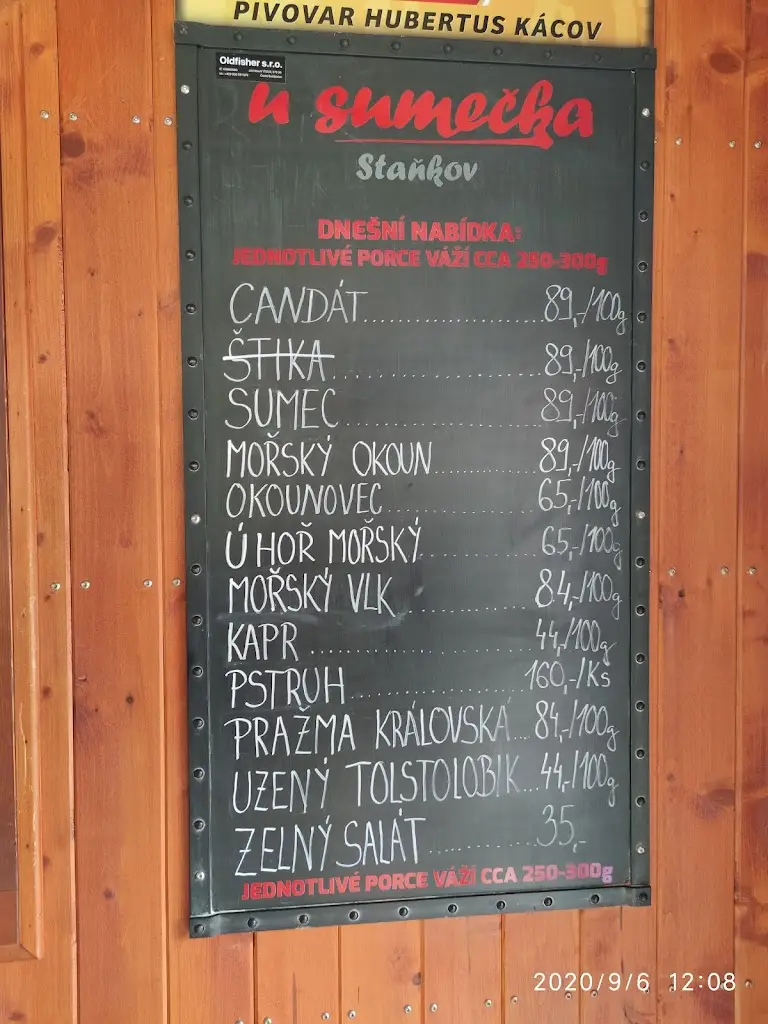 PIVOVAR HUBERTUS KÁCOV
Oldfisher s.r.o.
u sumečka
Staňkov
DNEŠNÍ NABÍDKA:
JEDNOTLIVÉ PORCE VÁŽÍ CCA 250-300g
CANDÁT....................89,-/100g
ŠTIKA....................89,-/100g
SUMEC....................89,-/100g
MOŘSKÝ OKOUN..........89,-/100g
OKOUNOVEC...............65,-/100g
ÚHOŘ MOŘSKÝ...........65,-/100g
MOŘSKÝ VLK..............84,-/100g
KAPR....................44,/100g
PSTRUH..................160,-/Ks
PRAŽMA KRÁLOVSKÁ...84,-/100g
UZENÝ TOLSTOLOBIK...44,-/100g
ZELNÝ SALÁT.............35,-
JEDNOTLIVÉ PORCE VÁŽÍ CCA 250-300g
2020/9/6 12:08